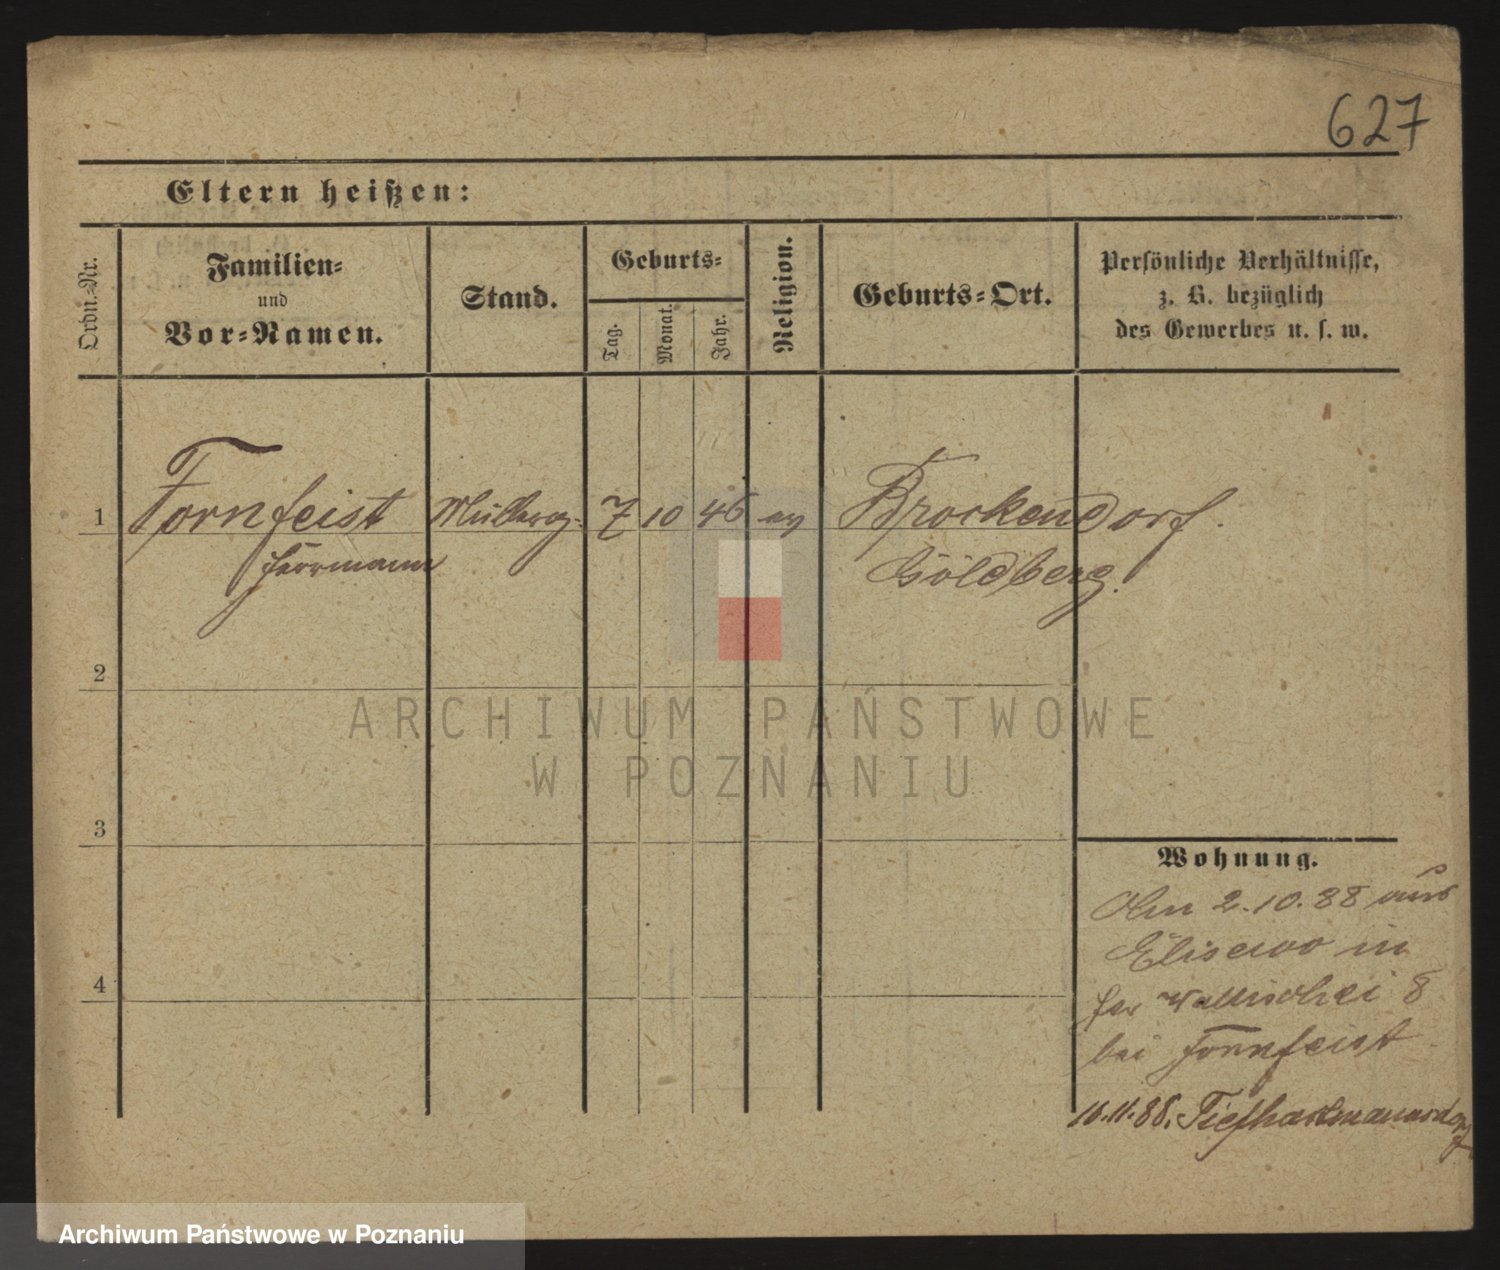 627
Eltern heißen:
Ordn.-Nr.
Familien-
und
Vor-Namen.
Stand.
Geburts-
Tag.
Monat.
Jahr.
Religion.
Geburts-Ort.
Persönliche Verhältnisse,
z. B. bezüglich
des Gewerbes u. s. w.
1 Fornfeist 7 10 46 ev Brockendorf.
Herrmann Goldberg.
2
ARCHIWUM PAŃSTWOWE
W POZNANIU
3
4
Wohnung.
2.10.88 aus
Elisewo in
Wallischei 8
bei Fornfeist
16.11.88. Tiefhartmannsdorf
Archiwum Państwowe w Poznaniu